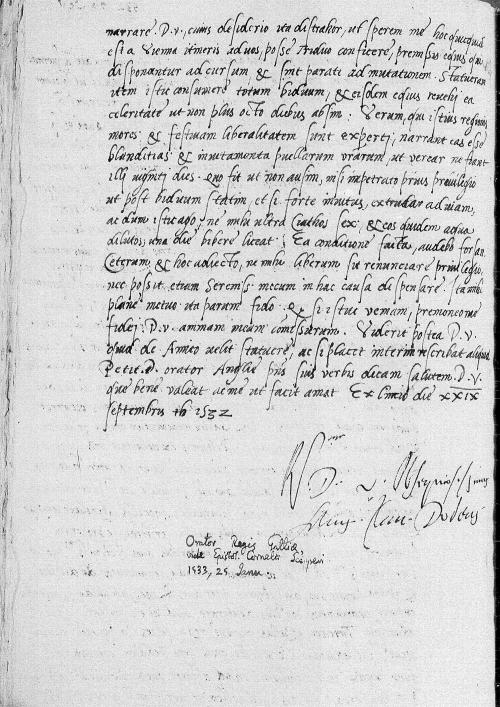 narrare. D. v., cuius desiderio ita distrahor, ut sperem me hoc quicquid
est a Vienna itineris ad vos, posse biduo conficere, premissis equis qui
disponantur ad cursum & sint parati ad mutationem. Statueram
item istic consumere totum biduum, & eisdem equis revehi ea
celeritate ut non plus octo diebus absim. Verum, qui istius regionis
mores & festivam liberalitatem sunt experti, narrant eas esse
blanditias & invitamenta puellarum vrarum, ut verear ne fiant
illi viginti dies. Quo fit ut non ausim, nisi impetrato prius privilegio
ut post biduum statim, etsi forte invitus, extrudar ad viam,
ac dum istic ago, ne mihi ultra Ciathos sex, & eos quidem aqua
dilutos, una die bibere liceat. Ea conditione facta, audebo forsan.
Ceterum, & hoc adiecto, ne mihi liberum sit renunciare privilegio,
nec possit etiam Serenis. mecum in hac causa dispensare.
plane metuo ita parum fido. & si istuc veniam, premoneo me
fidei. D. v. animam meam commissurum. Viderit postea D. v.
quid de Amico velit statuere, ac si placet interim rescribat aliquid.
Petit. d. orator Anglie piis suis verbis dicam salutem. D. v.
que bene valeat ac me ut facit amet Ex Lincio die XXIX
septembris 1532
R. D. v. Obsequiosissimus
Orator Regis Galliae,
vide Epistol. Cornelii Scepperi
1533, 25 Januar.